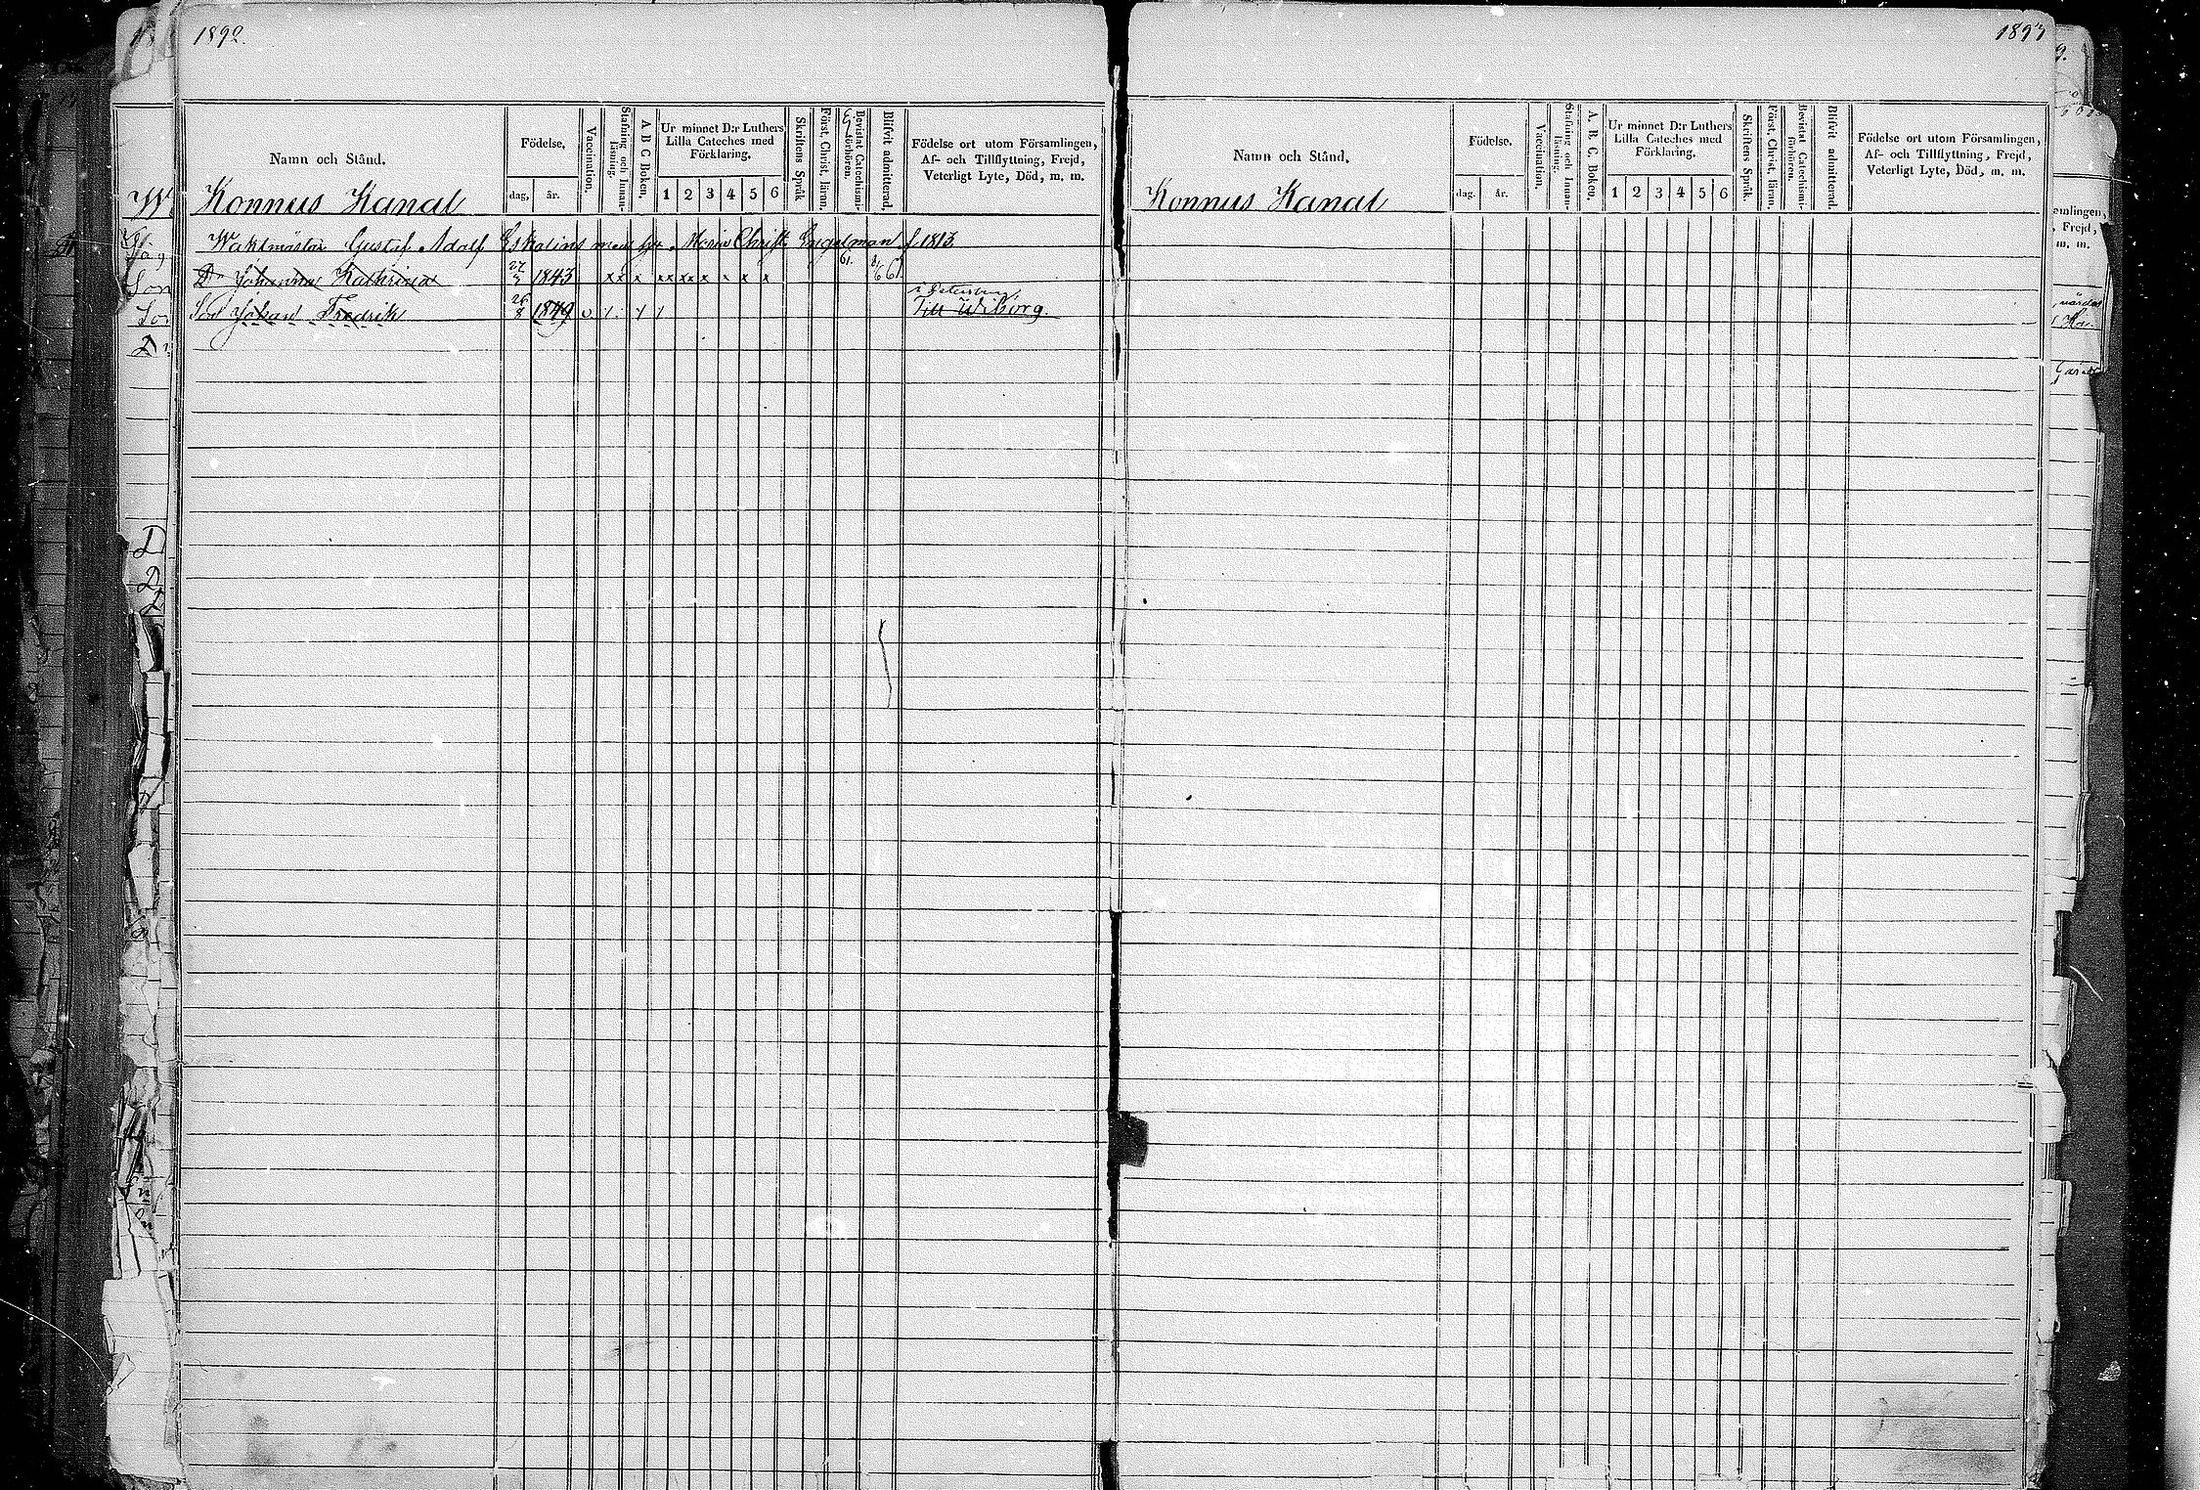 1892.
Namn och Stånd.
Födelse,
dag, år.
Vaccination.
Stafning och Innan-läsning.
A B C Boken.
Ur minnet D:r Luthers
Lilla Cateches med
Förklaring.
1 2 3 4 5 6
Skriftens Språk
Först. Christ. läran.
Bevistat Catechismi-förhören.
Blifvit admitterad.
Födelse ort utom Församlingen,
Af- och Tillflyttning, Frejd,
Veterligt Lyte, Död, m. m.
Konnus Kanal
Gustaf Adolf Eskolins med Maria Christ. Engelman f. 1813
61.
D Johanna Kathrina 27/3 1843 xx x xx xx x x x x 61
Son Johan Fredrik 26/8 1849 v. Till Wiborg
i Petersburg
1893
Namn och Stånd.
Födelse.
dag. år.
Vaccination.
Stafning och Innan-läsning.
A. B. C. Boken.
Ur minnet D:r Luthers
Lilla Cateches med
Förklaring.
1 2 3 4 5 6
Skriftens Språk.
Först. Christ. läran.
Bevistat Catechismi-förhören.
Blifvit admitterad.
Födelse ort utom Församlingen,
Af- och Tillflyttning, Frejd,
Veterligt Lyte, Död, m. m.
Konnus Kanal